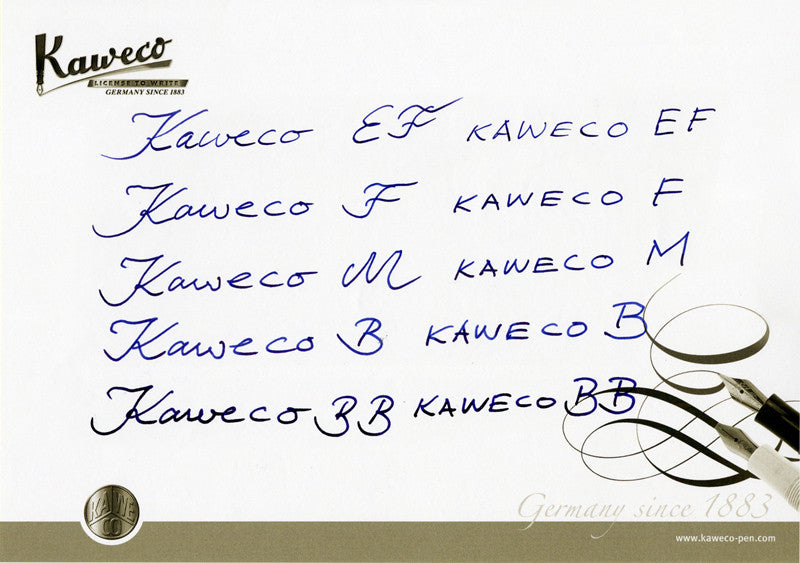 Kaweco
LICENSE TO WRITE
GERMANY SINCE 1883
Kaweco EF KAWECO EF
Kaweco F KAWECO F
Kaweco M KAWECO M
Kaweco B KAWECO B
Kaweco BB KAWECO BB
KA WE
CO
Germany since 1883
www.kaweco-pen.com